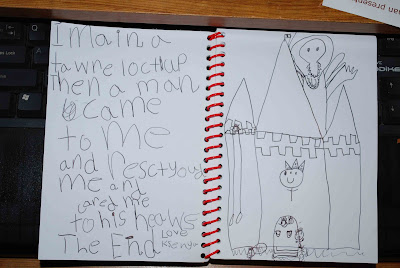 I Main a
tawne loctkup
Then a man
came
to me
and resctyoud
me ant
cared me
to his heawse
The End Love